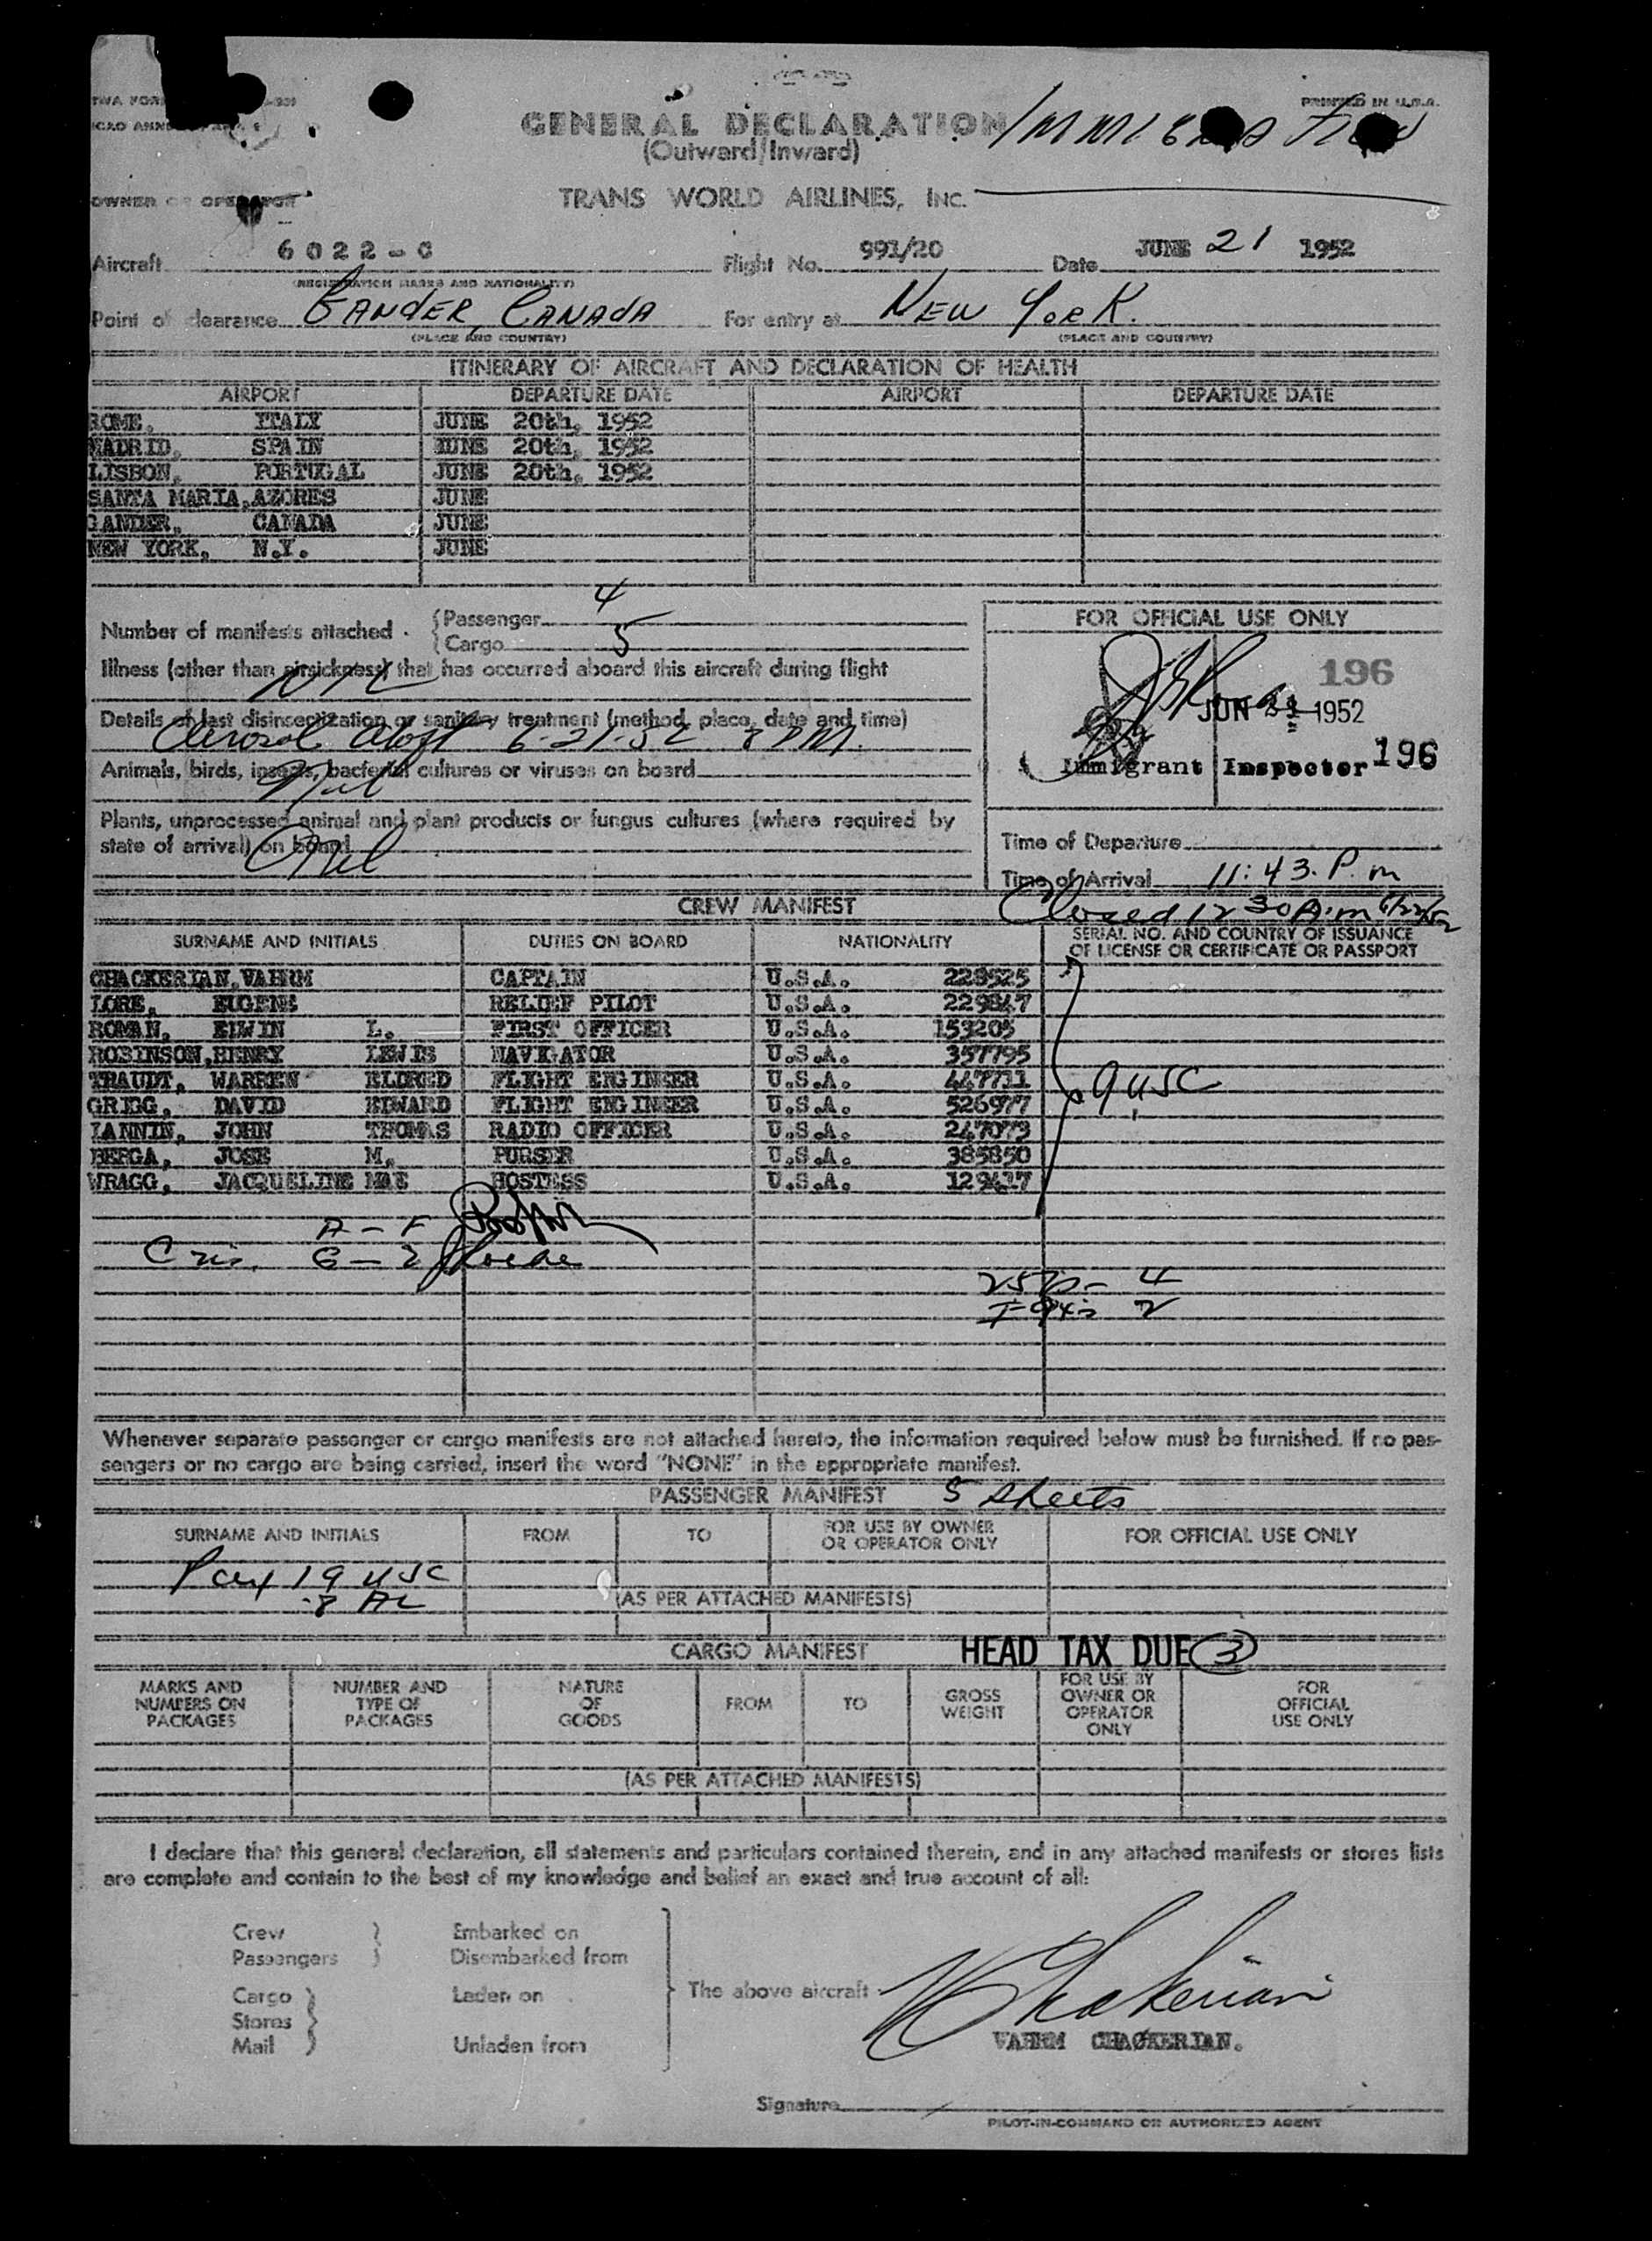 PRINTED IN U.S.A.
GENERAL DECLARATION IMMIGRATION
(Outward/Inward)
OWNER OR OPERATOR
TRANS WORLD AIRLINES, INC.
Aircraft 6022-C Flight No. 991/20 Date JUNE 21 1952
(REGISTRATION MARKS AND NATIONALITY)
Point of clearance GANDER, CANADA For entry at NEW YORK.
(PLACE AND COUNTRY) (PLACE AND COUNTRY)
ITINERARY OF AIRCRAFT AND DECLARATION OF HEALTH
AIRPORT DEPARTURE DATE AIRPORT DEPARTURE DATE
ROME, ITALY JUNE 20th, 1952
MADRID, SPAIN JUNE 20th, 1952
LISBON, PORTUGAL JUNE 20th, 1952
SANTA MARIA, AZORES JUNE
GANDER, CANADA JUNE
NEW YORK, N.Y. JUNE
Number of manifests attached . Passenger 4
Cargo 5
Illness (other than airsickness) that has occurred aboard this aircraft during flight
NIL
Details of last disinsectization or sanitary treatment (method, place, date and time)
Aerosol Aloft 6-21-52 8 PM.
Animals, birds, insects, bacterial cultures or viruses on board
Nil
Plants, unprocessed animal and plant products or fungus cultures (where required by
state of arrival) on board
Nil
FOR OFFICIAL USE ONLY
196
JUN 1952
Immigrant Inspector 196
Time of Departure
Time of Arrival 11:43 P.m
Closed 12 30 A.m 6/22/52
CREW MANIFEST
SURNAME AND INITIALS DUTIES ON BOARD NATIONALITY SERIAL NO. AND COUNTRY OF ISSUANCE
OF LICENSE OR CERTIFICATE OR PASSPORT
CHACKERIAN, VAHRM CAPTAIN U.S.A. 228525
LORE, EUGENE RELIEF PILOT U.S.A. 229847
ROMAN, EDWIN L. FIRST OFFICER U.S.A. 159205
ROBINSON, HENRY LEWIS NAVIGATOR U.S.A. 357795
TRAUDT, WARREN ELDRED FLIGHT ENGINEER U.S.A. 447711
GREGG, DAVID EDWARD FLIGHT ENGINEER U.S.A. 526977
IANNIN, JOHN THOMAS RADIO OFFICER U.S.A. 247073
BERGA, JOSE M. PURSER U.S.A. 385850
WRAGG, JACQUELINE MAE HOSTESS U.S.A. 129417
9 USC
A - F
G - Z
4
2
Whenever separate passenger or cargo manifests are not attached hereto, the information required below must be furnished. If no pas-
sengers or no cargo are being carried, insert the word "NONE" in the appropriate manifest.
PASSENGER MANIFEST 5 sheets
SURNAME AND INITIALS FROM TO FOR USE BY OWNER
OR OPERATOR ONLY FOR OFFICIAL USE ONLY
Pax 19 USC
8 AL
(AS PER ATTACHED MANIFESTS)
CARGO MANIFEST HEAD TAX DUE 3
MARKS AND
NUMBERS ON
PACKAGES
NUMBER AND
TYPE OF
PACKAGES
NATURE
OF
GOODS
FROM
TO
GROSS
WEIGHT
FOR USE BY
OWNER OR
OPERATOR
ONLY
FOR
OFFICIAL
USE ONLY
(AS PER ATTACHED MANIFESTS)
I declare that this general declaration, all statements and particulars contained therein, and in any attached manifests or stores lists
are complete and contain to the best of my knowledge and belief an exact and true account of all:
Crew Embarked on
Passengers Disembarked from
Cargo Laden on
Stores
Mail Unladen from
The above aircraft
V Chakerian
VAHRM CHACKERIAN.
Signature
PILOT-IN-COMMAND OR AUTHORIZED AGENT